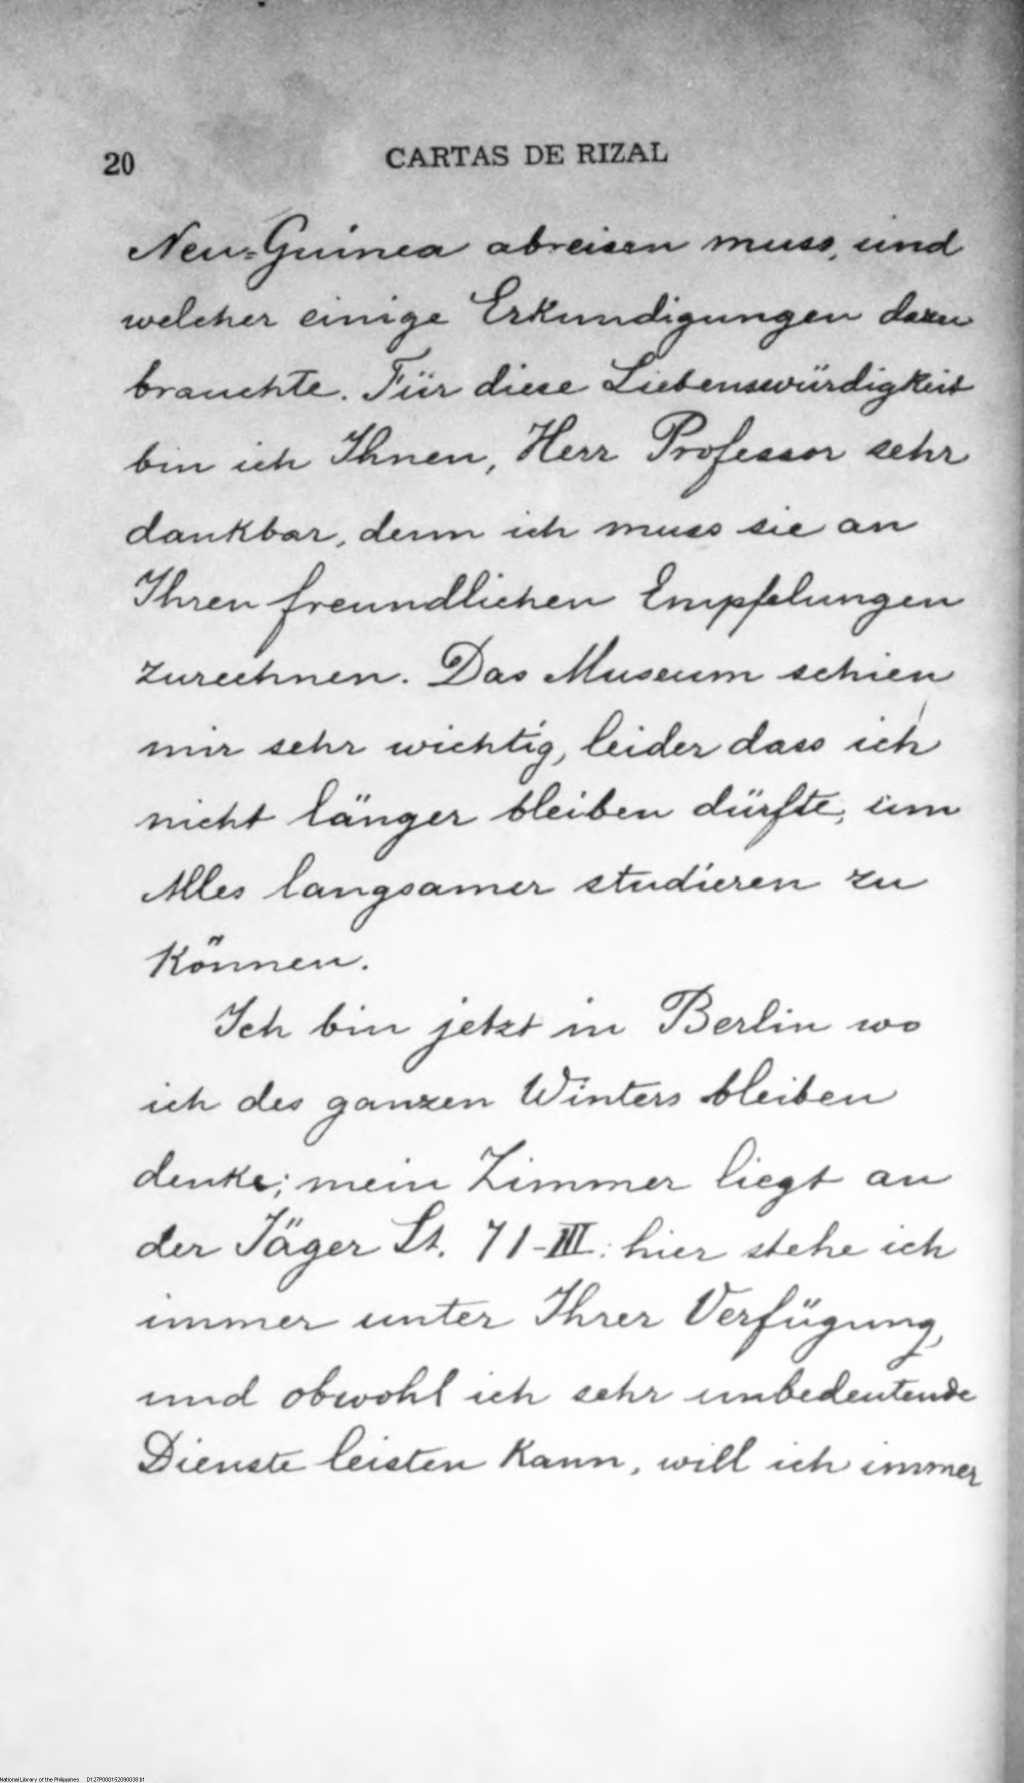 20 CARTAS DE RIZAL
Neu=Guinea abreisen muss, und
welcher einige Erkundigungen dazu
brauchte. Für diese Liebenswürdigkeit
bin ich Ihnen, Herr Professor sehr
dankbar, denn ich muss sie an
Ihren freundlichen Empfelungen
zurechnen. Das Museum schien
mir sehr wichtig, leider dass ich
nicht länger bleiben dürfte, um
Alles langsamer studieren zu
können.
Ich bin jetzt in Berlin wo
ich des ganzen Winters bleiben
denke; mein Zimmer liegt an
der Jäger St. 71-III: hier stehe ich
immer unter Ihrer Verfügung,
und obwohl ich sehr unbedeutende
Dienste leisten kann, will ich immer
National Library of the Philippines